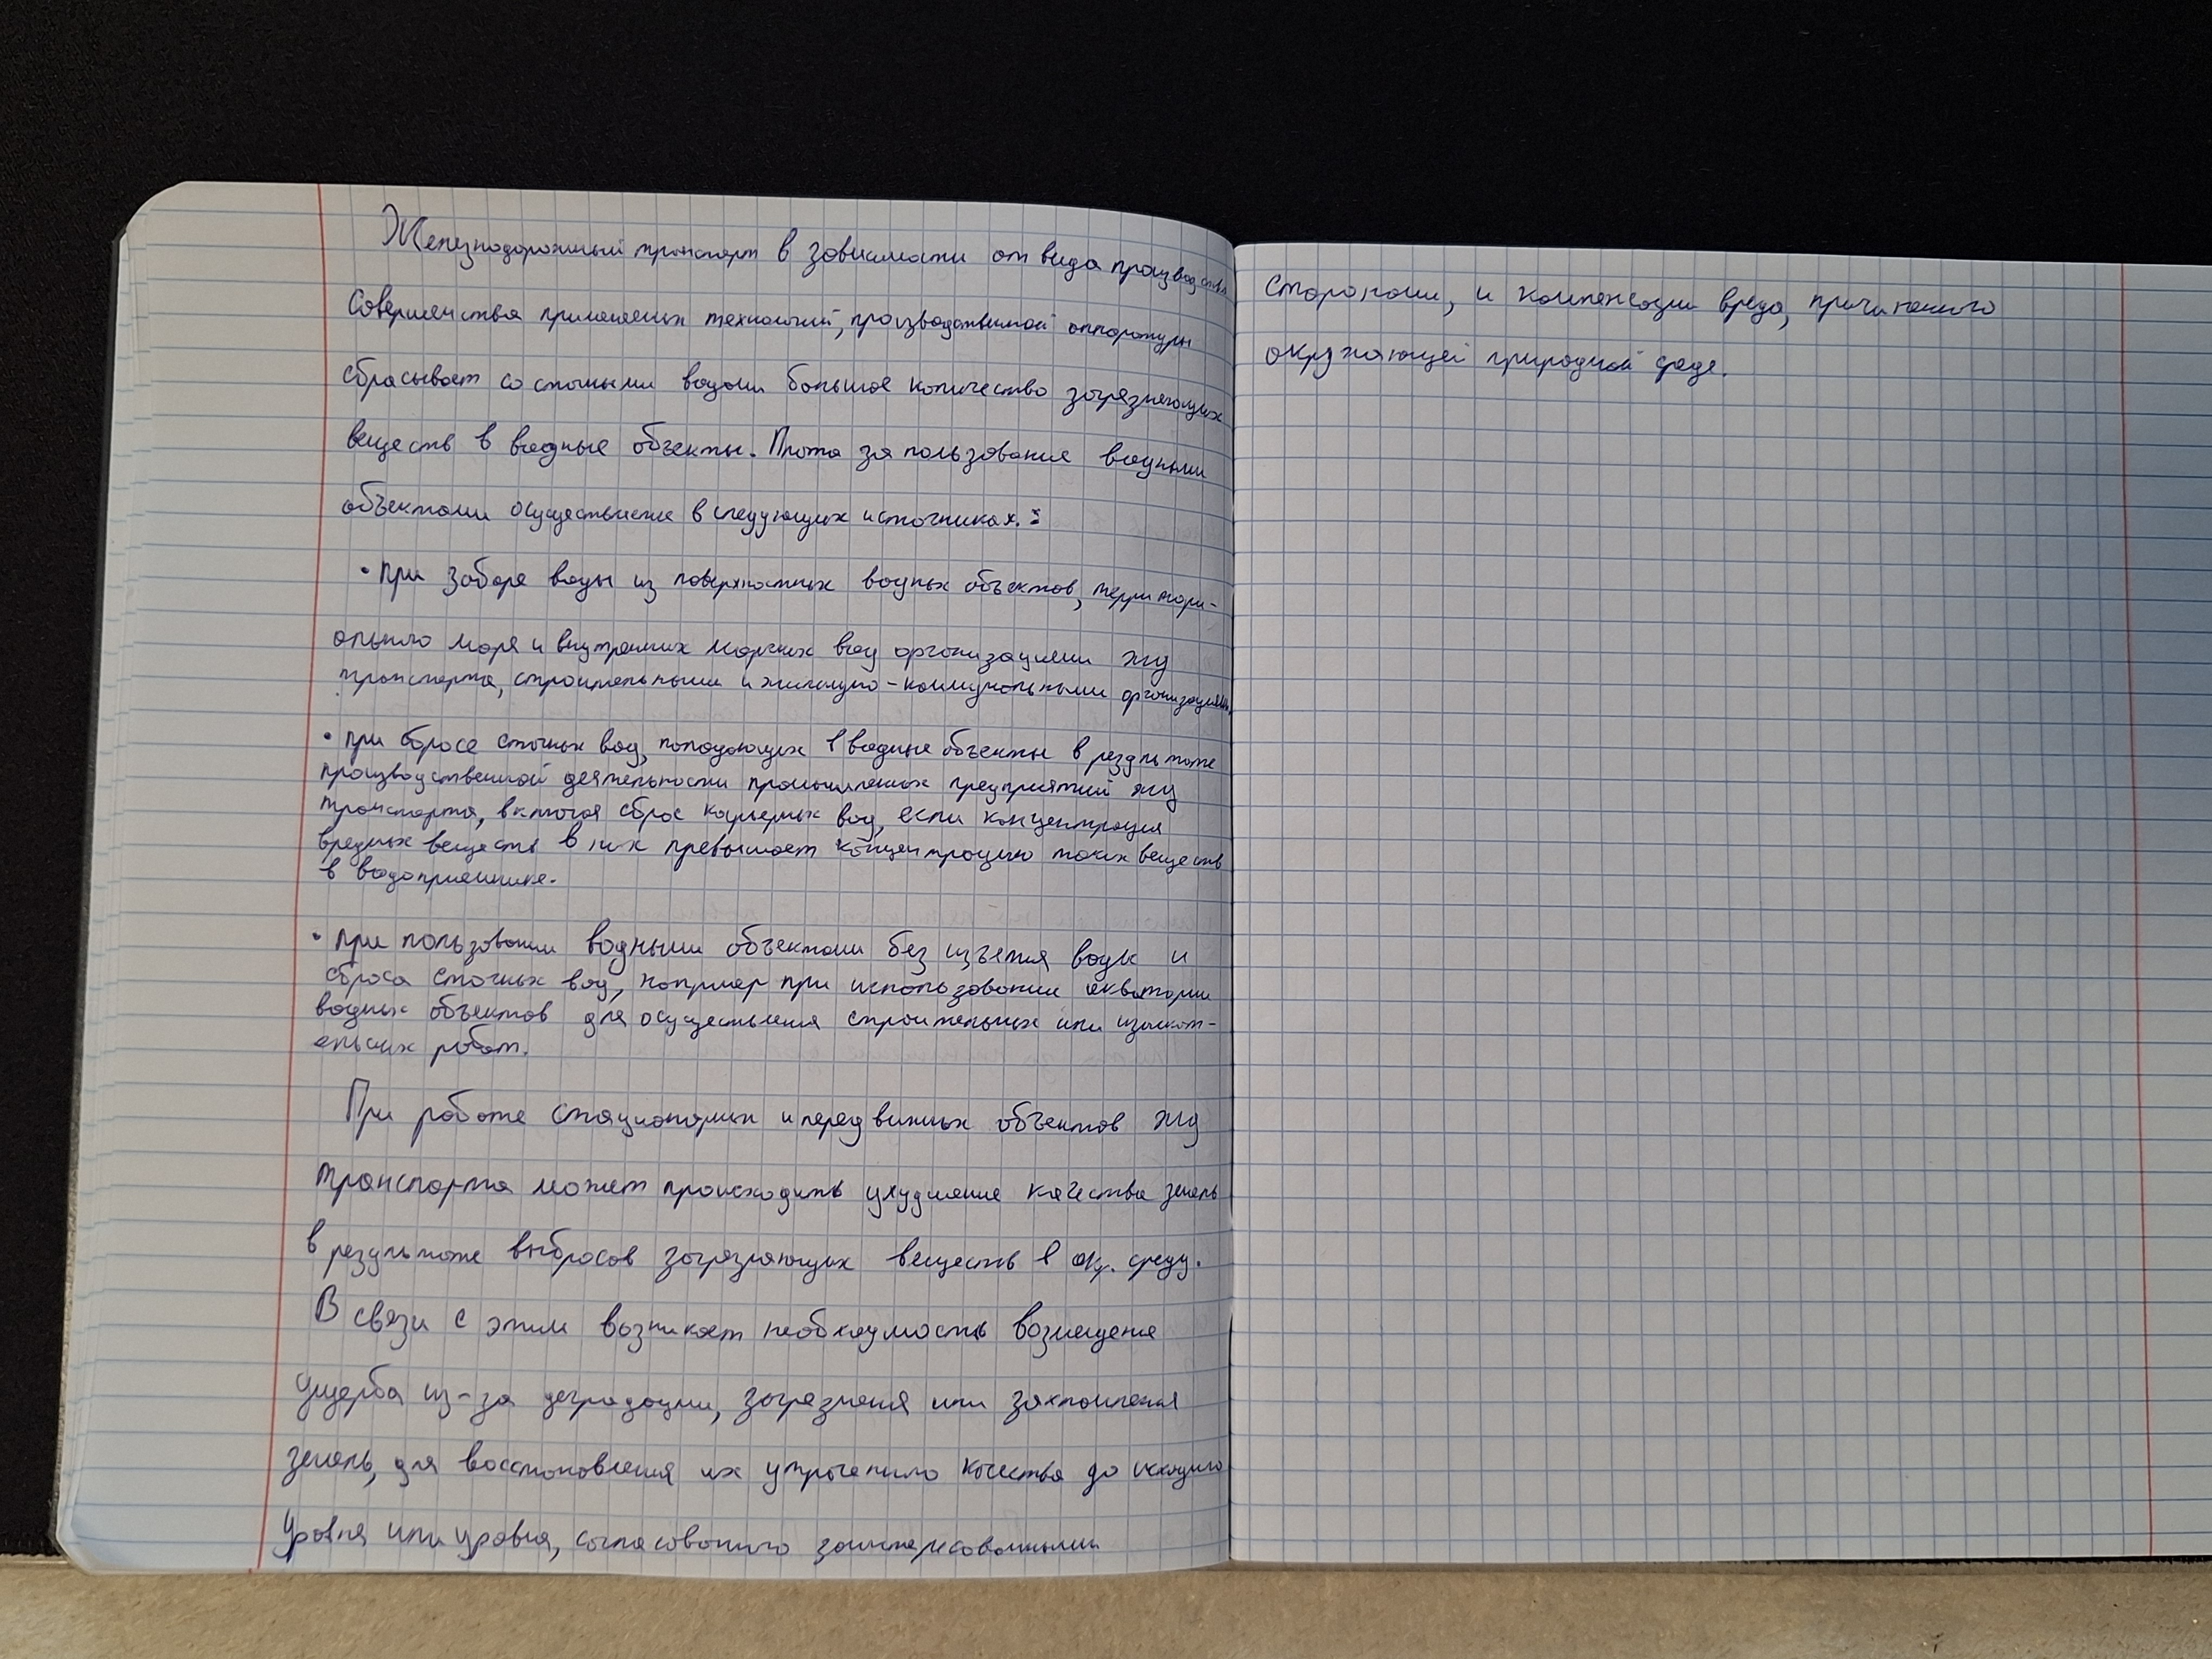 Железнодорожный транспорт в зависимости от вида производства
Совершенства применяемых технологий, производственной аппаратуры
сбрасывает со сточными водами большое количество загрязняющих
веществ в водные объекты. Плата за пользование водными
объектами осуществление в следующих источниках. :
• при заборе воды из поверхностных водных объектов, территори-
ального моря и внутренних морских вод организациями жд
транспорта, строительными и жилищно-коммунальными организациями.
• при сбросе сточных вод, попадающих в водные объекты в результате
производственной деятельности промышленных предприятий жд
транспорта, включая сброс карьерных вод, если концентрация
вредных веществ в них превышает концентрацию таких веществ
в водоприемнике.
• при пользовании водными объектами без изъятия воды и
сброса сточных вод, например при использовании акватории
водных объектов для осуществления строительных или изыскат-
ельских работ.
При работе стационарных и передвижных объектов жд
транспорта может происходить ухудшение качества земель
в результате выбросов загрязняющих веществ в окр. среду.
В связи с этим возникает необходимость возмещение
ущерба из-за деградации, загрязнения или захламления
земель, для восстановления их утраченного качества до исходного
уровня или уровня, согласованного заинтересованными
сторонами, и компенсации вреда, причиненного
окружающей природной среде.